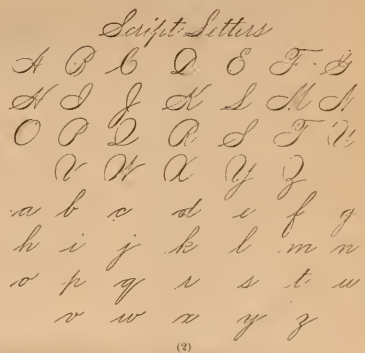 Script Letters
A B C D E F G
H I J K L M N
O P Q R S T U
V W X Y Z
a b c d e f g
h i j k l m n
o p q r s t u
v w x y z
(2)